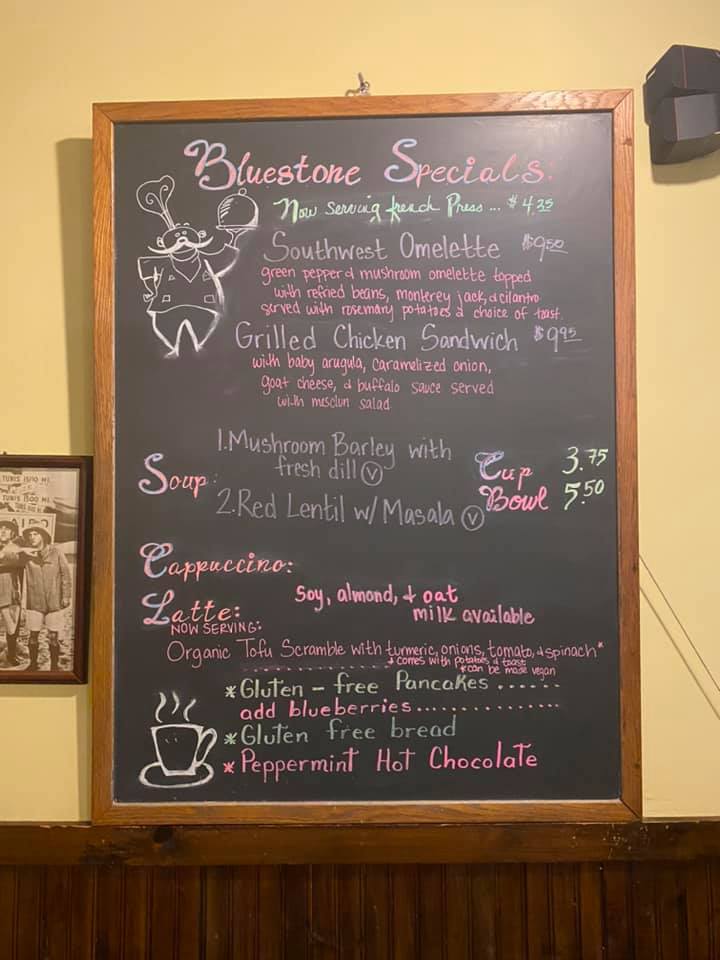 Bluestone Specials:
Now serving french Press ... $4.35
Southwest Omelette $9.50
green pepper & mushroom omelette topped
with refried beans, monterey jack, & cilantro
served with rosemary potatoes & choice of toast.
Grilled Chicken Sandwich $9.95
with baby arugula, caramelized onion,
goat cheese, & buffalo sauce served
with mesclun salad
Soup:
1. Mushroom Barley with
fresh dill Ⓥ
2. Red Lentil w/ Masala Ⓥ
Cup 3.75
Bowl 5.50
Cappuccino:
Latte:
Soy, almond, & oat
milk available
NOW SERVING:
Organic Tofu Scramble with turmeric, onions, tomato, & spinach*
& comes with potatoes & toast
*can be made vegan
*Gluten-free Pancakes ......
add blueberries..............
*Gluten free bread
*Peppermint Hot Chocolate
TUNIS 1500 MI.